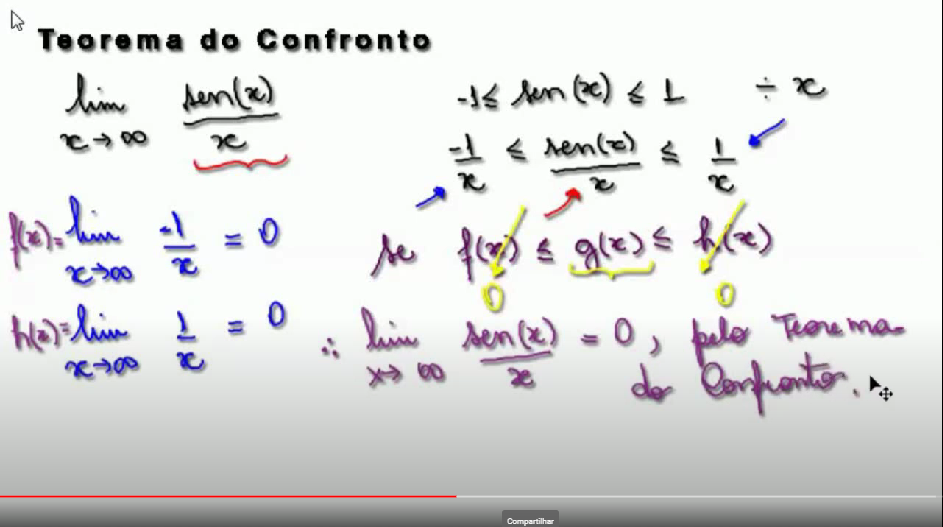 Teorema do Confronto
lim x→∞ sen(x)/x
-1 ≤ sen(x) ≤ 1 ÷ x
-1/x ≤ sen(x)/x ≤ 1/x
f(x)= lim x→∞ -1/x = 0
se f(x) ≤ g(x) ≤ h(x)
0 0
h(x)= lim x→∞ 1/x = 0
∴ lim x→∞ sen(x)/x = 0, pelo Teorema
do Confronto.
Compartilhar